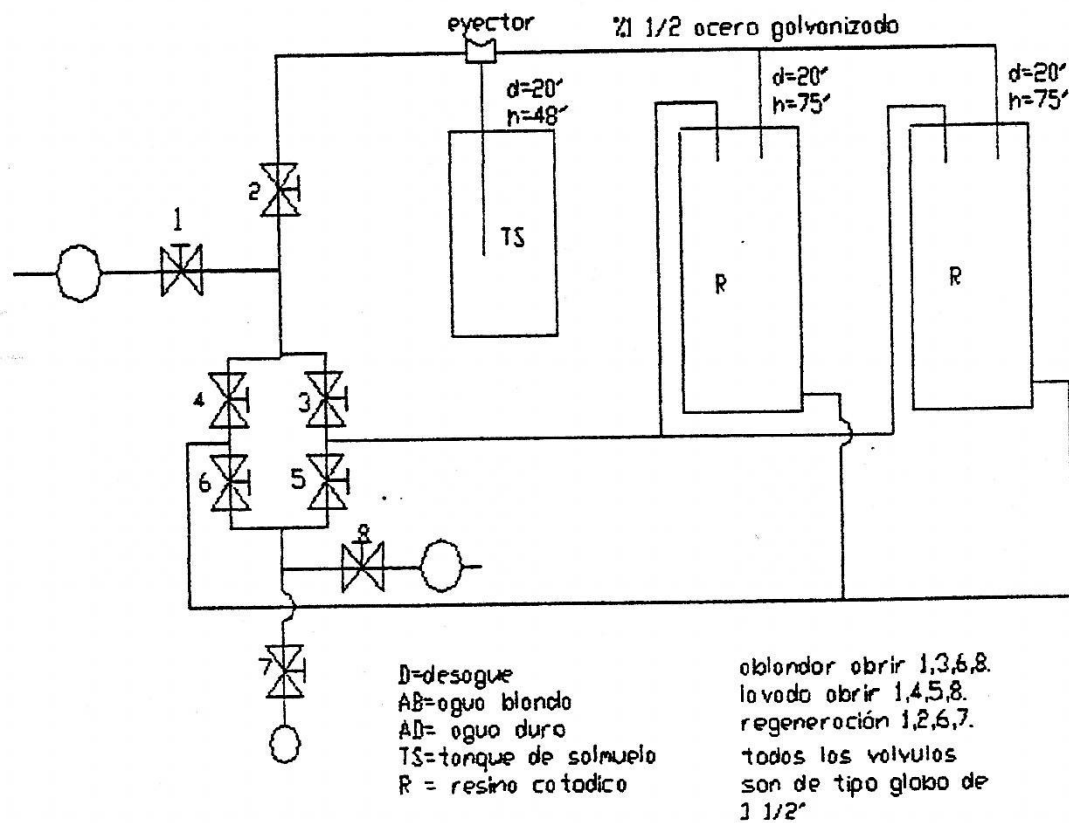 eyector
%1 1/2 ocero golvonizodo
d=20"
h=48"
d=20"
h=75"
d=20"
h=75"
2
1
TS
R
R
4
3
6
5
8
7
D=desogue
AB=oguo blondo
AD= oguo duro
TS=tonque de solmuelo
R = resino cotodico
oblondor obrir 1,3,6,8.
lovodo obrir 1,4,5,8.
regeneroción 1,2,6,7.
todos los volvulos
son de tipo globo de
1 1/2"